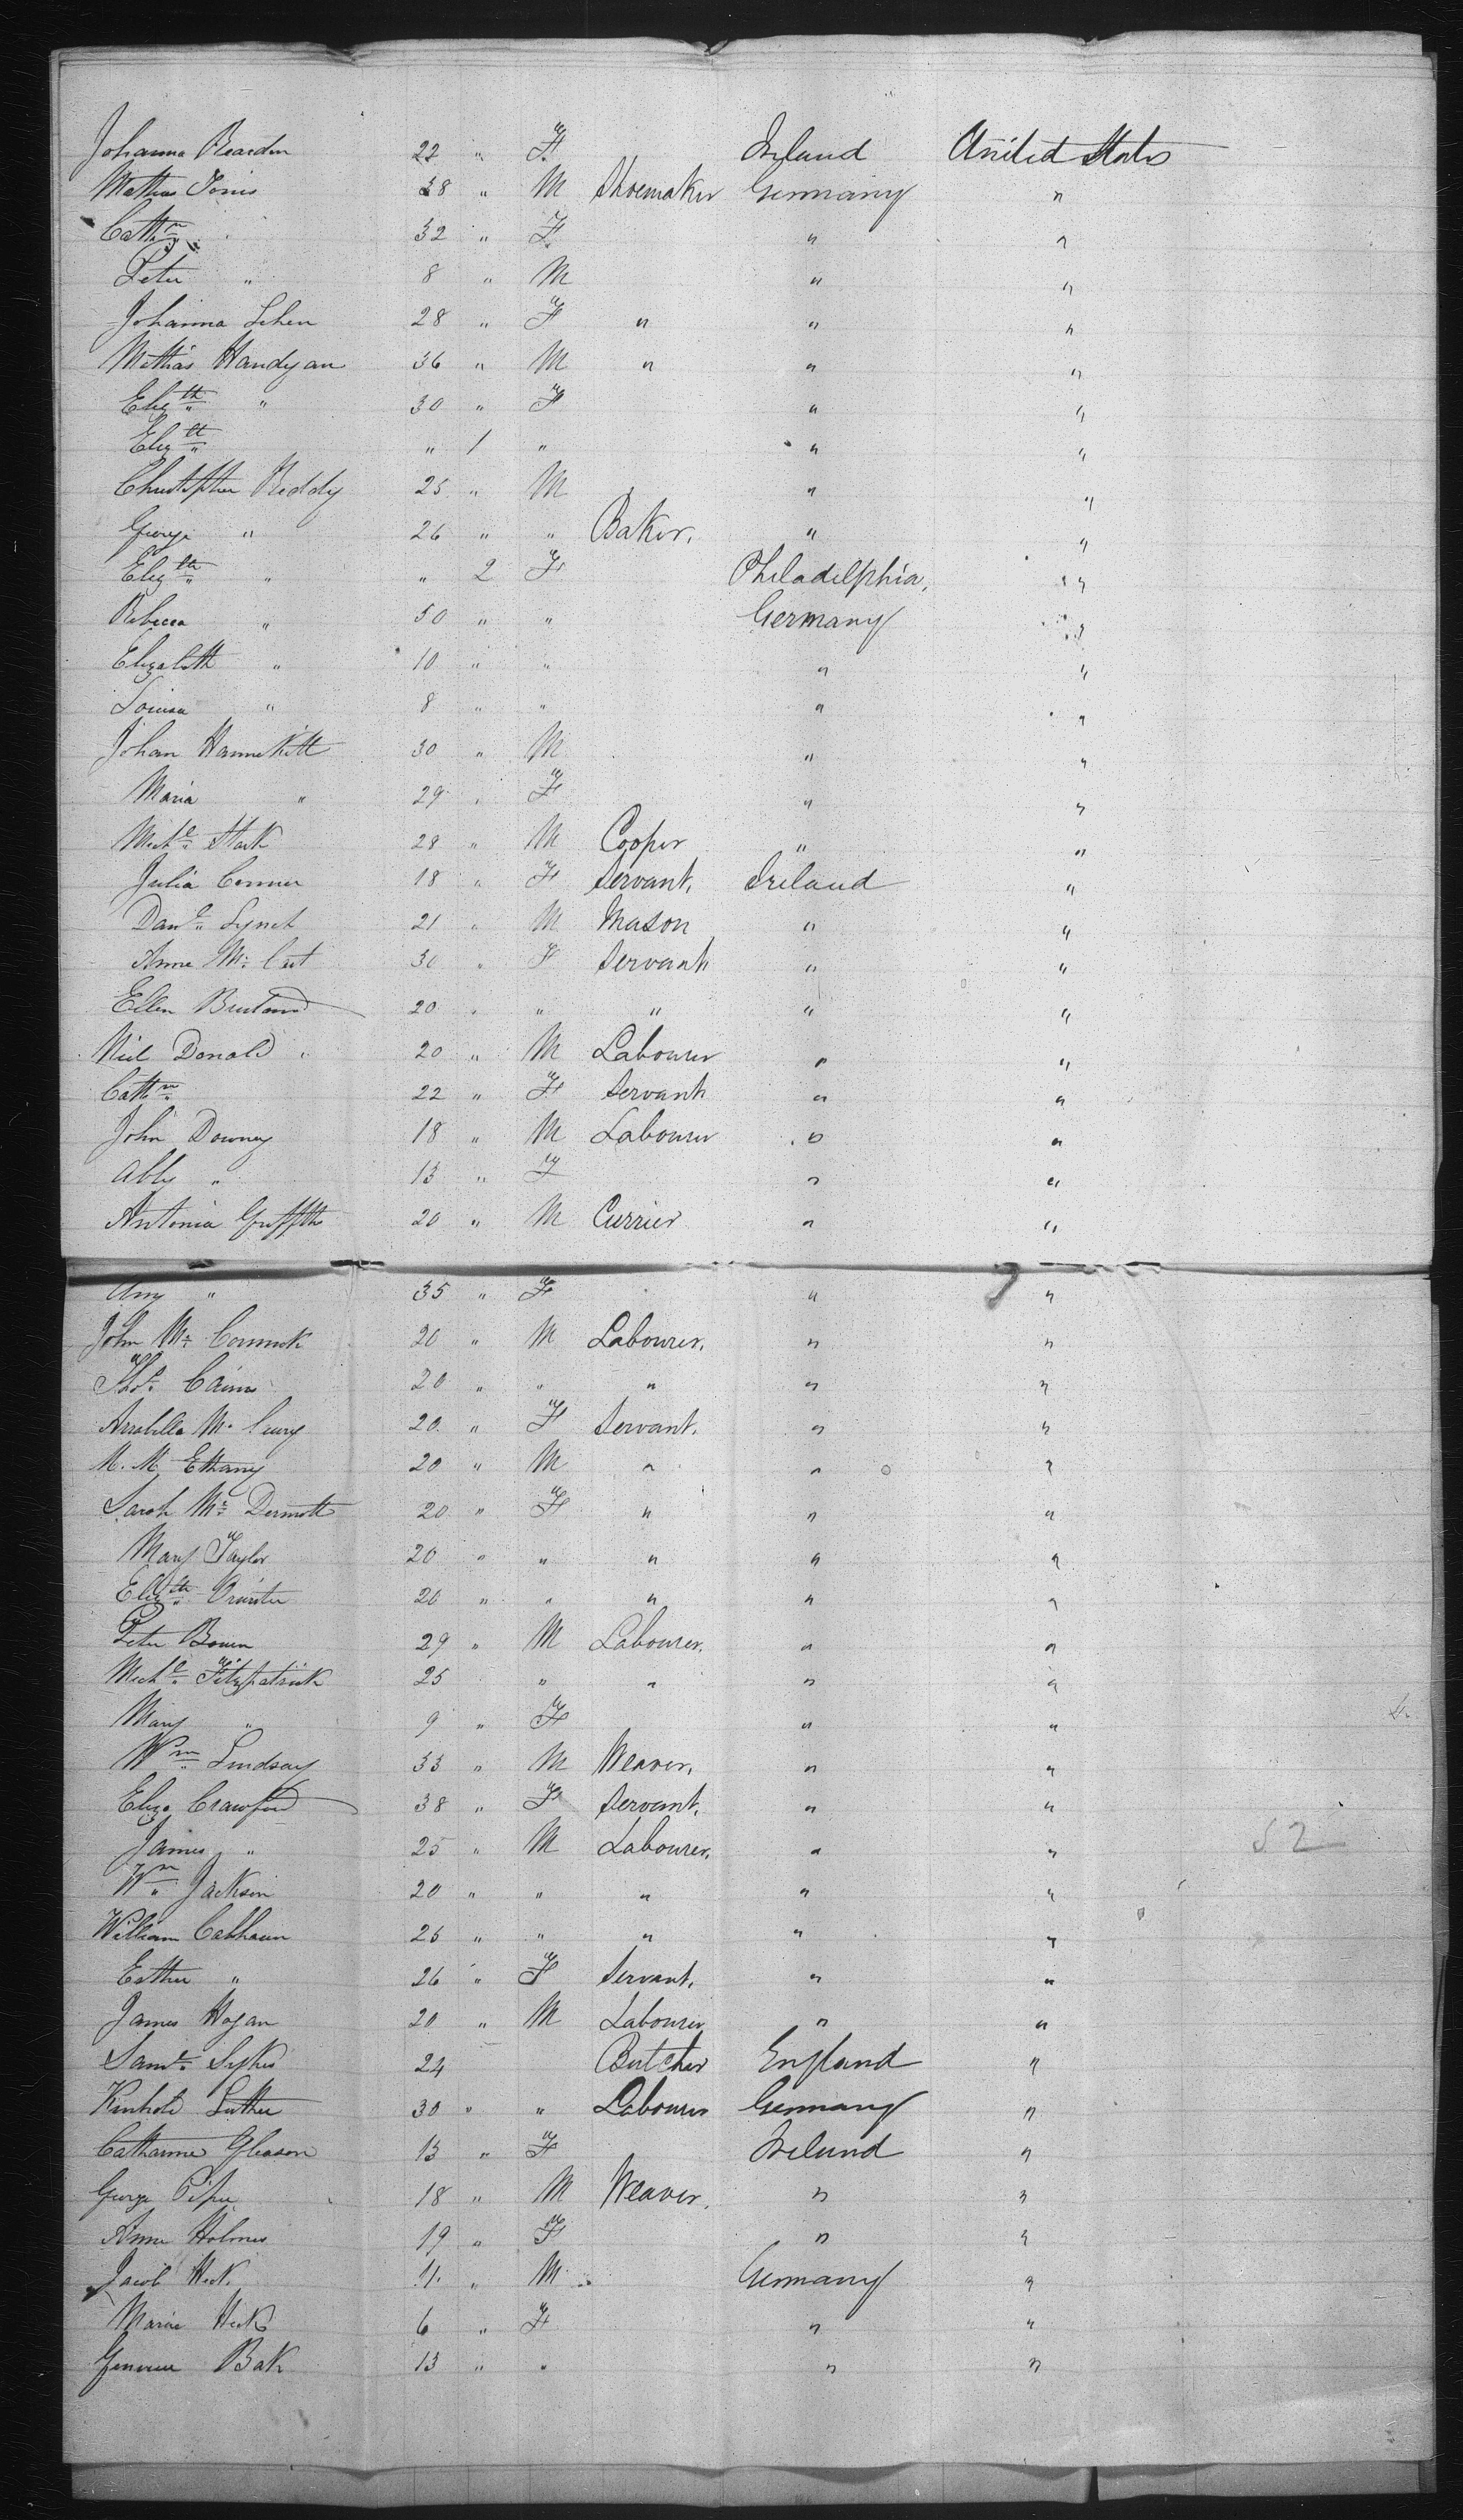 Johanna Rearden 22 " F. Ireland United States
Mathias Tonis 38 " M Shoemaker Germany "
Cathn " 32 " F. " "
Peter " 8 " M " "
Johanna Lehen 28 " F " " "
Mathias Handyan 36 " M " " "
Elizth " 30 " F " "
Elizth " 1 " " "
Christopher Reddy 25 " M " "
George " 26 " " Baker. " "
Elizth " " 2 F Philadelphia. "
Rebecca " 50 " " Germany "
Elizabeth " 10 " " " "
Louisa " 8 " " " "
Johan Hannekitt 30 " M " "
Maria " 29 " F " "
Michl Stark 28 " M Cooper " "
Julia Conner 18 " F Servant. Ireland "
Danl Lynch 21 " M Mason " "
Anne Mc 30 " F Servant " "
Ellen 20 " " " " "
Niel Donald 20 " M Labourer " "
Cathn 22 " F Servant " "
John Downey 18 " M Labourer " "
Abby " 13 " F " "
Antonia Griffith 20 " M Currier " "
Amy " 35 " F " "
John Mc Cormick 20 " M Labourer. " "
Thos. Cairns 20 " " " " "
Arrabella Mc 20 " F Servant. " "
M. Mc 20 " M " " "
Sarah Mc Dermott 20 " F " " "
Mary Taylor 20 " " " " "
Elizth 20 " " " " "
Peter Bowen 29 " M Labourer. " "
Michl Fitzpatrick 25 " " " "
Mary " 9 " F " "
Wm Lindsay 33 " M Weaver. " "
Eliza Crawford 38 " F Servant. " "
James " 25 " M Labourer. " " 52
Wm Jackson 20 " " " " "
William Calhoun 25 " " " " "
Esther " 26 " F Servant. " "
James Hogan 20 " M Labourer " "
Saml Sykes 24 Butcher England "
Luther 30 " " Labourer Germany "
Catharine Gleason 13 " F Ireland "
George Piper 18 " M Weaver. " "
Anne Holmes 19 " F " "
Jacob Heck. 11. " M Germany "
Marie Heck 6 " F " "
Bak 13 " " " "